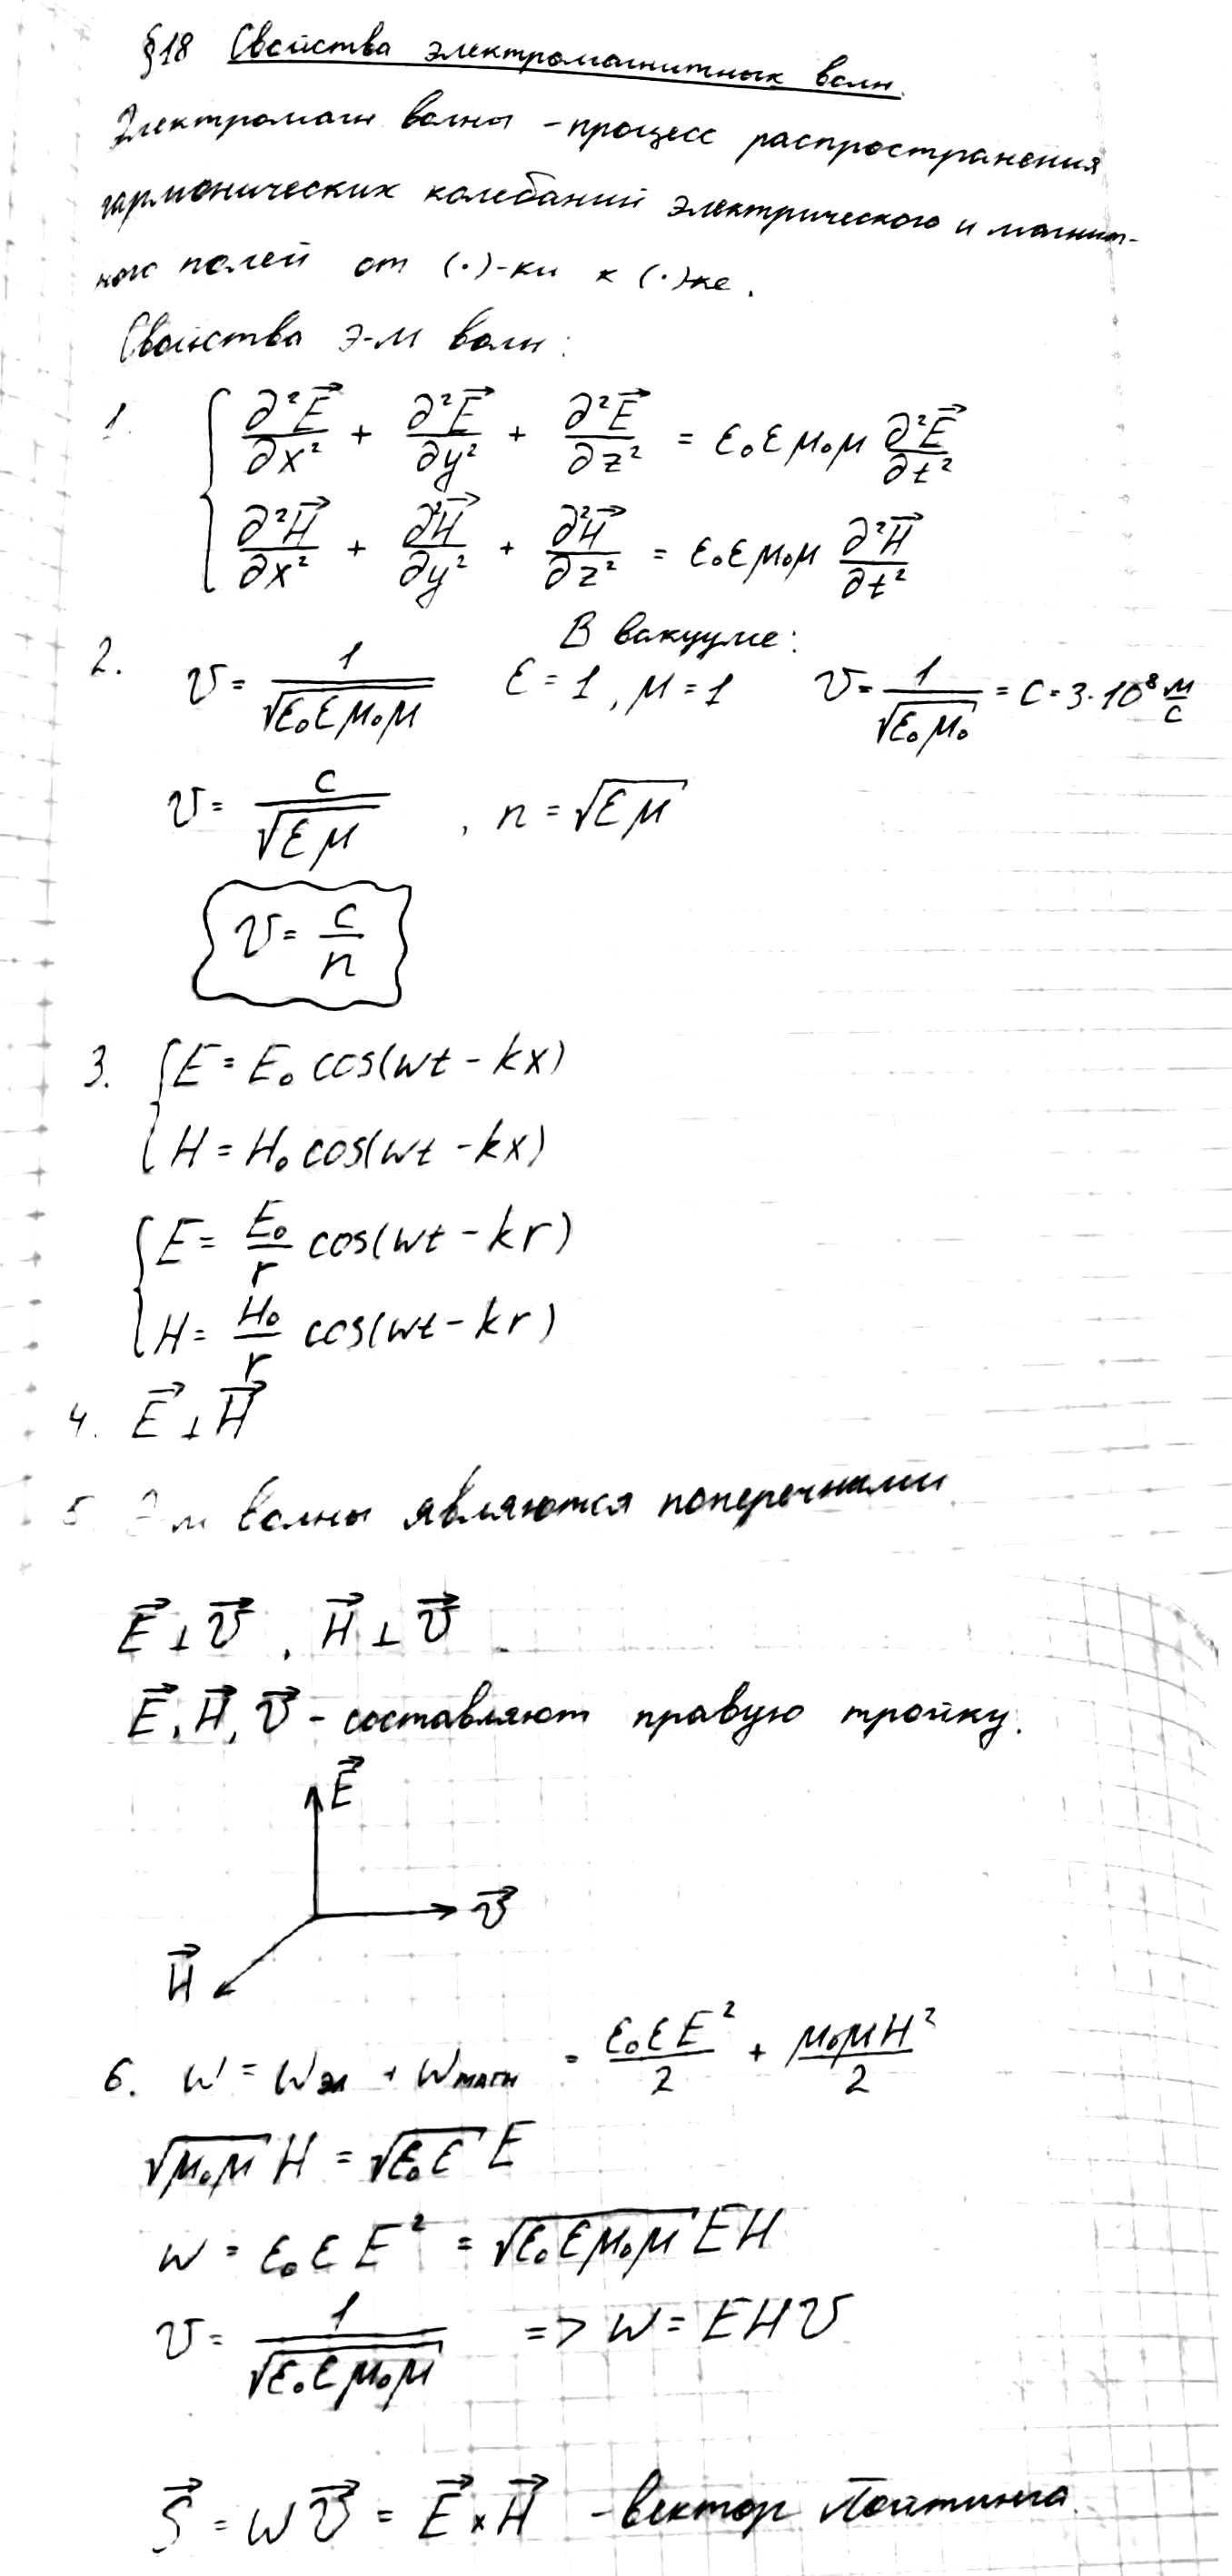 §18 Свойства электромагнитных волн.
Электромагн волны - процесс распространения
гармонических колебаний электрического и магнит-
ного полей от (·)-ки к (·)ке.
Свойства э-м волн:
1. { ∂²E⃗/∂x² + ∂²E⃗/∂y² + ∂²E⃗/∂z² = ε₀εμ₀μ ∂²E⃗/∂t²
∂²H⃗/∂x² + ∂²H⃗/∂y² + ∂²H⃗/∂z² = ε₀εμ₀μ ∂²H⃗/∂t²
В вакууме:
2. v = 1/√(ε₀εμ₀μ) ε = 1, μ = 1 v = 1/√(ε₀μ₀) = c = 3·10⁸ м/с
v = c/√(εμ) , n = √(εμ)
v = c/n
3. { E = E₀ cos(wt - kx)
H = H₀ cos(wt - kx)
{ E = E₀/r cos(wt - kr)
H = H₀/r cos(wt - kr)
4. E⃗ ⊥ H⃗
5. Э-м волны являются поперечными
E⃗ ⊥ v⃗, H⃗ ⊥ v⃗
E⃗, H⃗, v⃗ - составляют правую тройку.
E⃗
v⃗
H⃗
6. w = wэл + wмагн = ε₀εE²/2 + μ₀μH²/2
√(μ₀μ) H = √(ε₀ε) E
w = ε₀εE² = √(ε₀εμ₀μ) EH
v = 1/√(ε₀εμ₀μ) => w = EHv
S⃗ = wv⃗ = E⃗ × H⃗ - вектор Пойтинга.